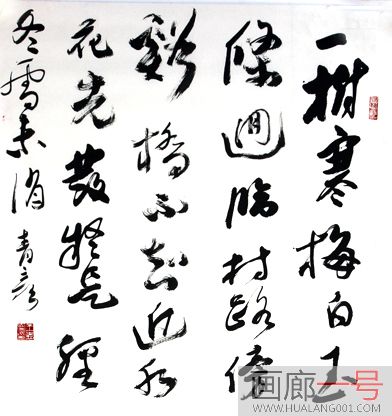 一樹寒梅白玉
條迥臨村路傍
谿橋不知近水
花先發疑是經
冬雪未消
画廊一号
WWW.HUALANG001.COM